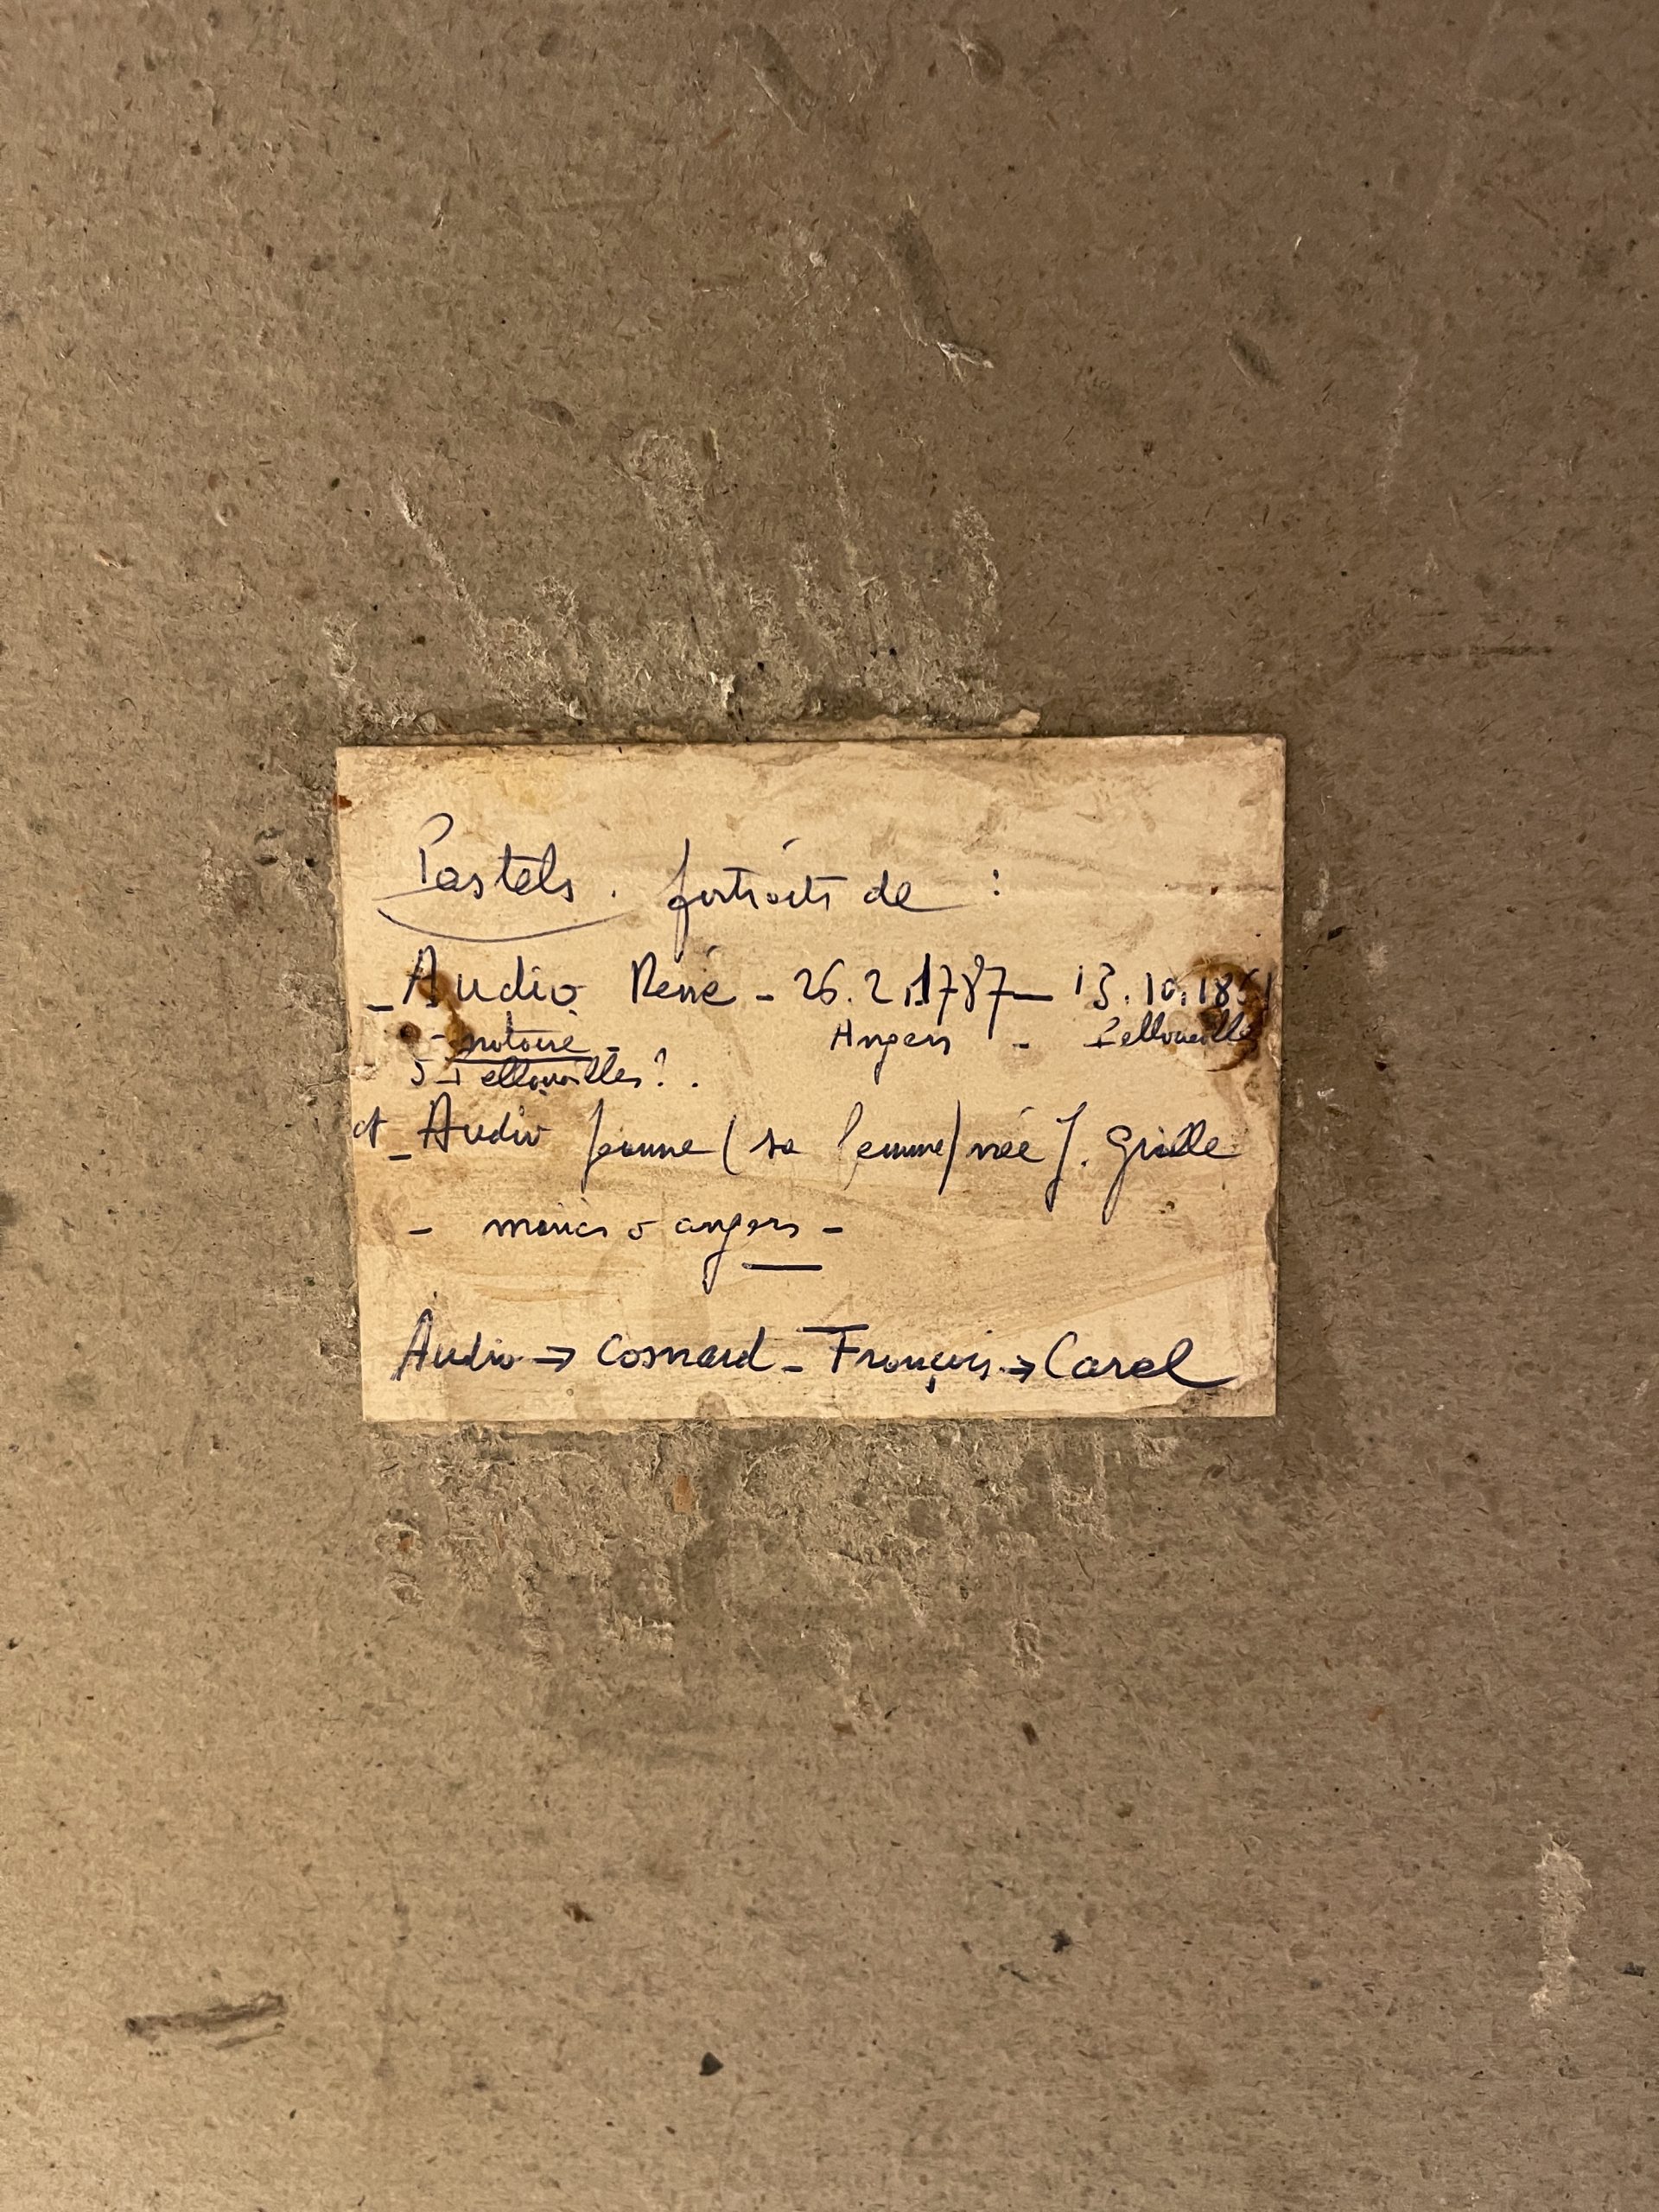 Pastels. portraits de :
- Audio René - 26.2.1787 - 13.10.1851
- notaire - Angers - Pellouailles
à Pellouailles? .
et - Audio Jeanne (sa femme) née J. Grille
- mariés à angers -
Audio → Cosnard - François → Carel